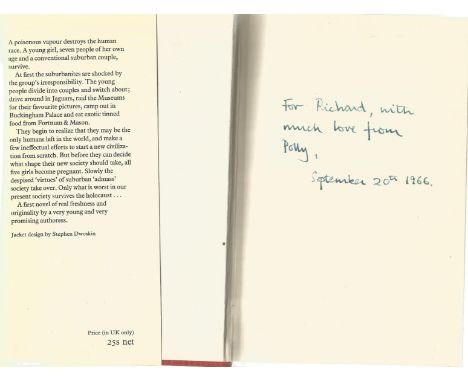 A poisonous vapour destroys the human
race. A young girl, seven people of her own
age and a conventional suburban couple,
survive.
At first the suburbanites are shocked by
the group's irresponsibility. The young
people divide into couples and switch about;
drive around in Jaguars, raid the Museums
for their favourite pictures, camp out in
Buckingham Palace and eat exotic tinned
food from Fortnum & Mason.
They begin to realize that they may be the
only humans left in the world, and make a
few ineffectual efforts to start a new civiliza-
tion from scratch. But before they can decide
what shape their new society should take, all
five girls become pregnant. Slowly the
despised 'virtues' of suburban 'admass'
society take over. Only what is worst in our
present society survives the holocaust . . .
A first novel of real freshness and
originality by a very young and very
promising authoress.
Jacket design by Stephen Dwoskin
Price (in UK only)
25s net
For Richard, with
much love from
Polly,
September 20th 1966.